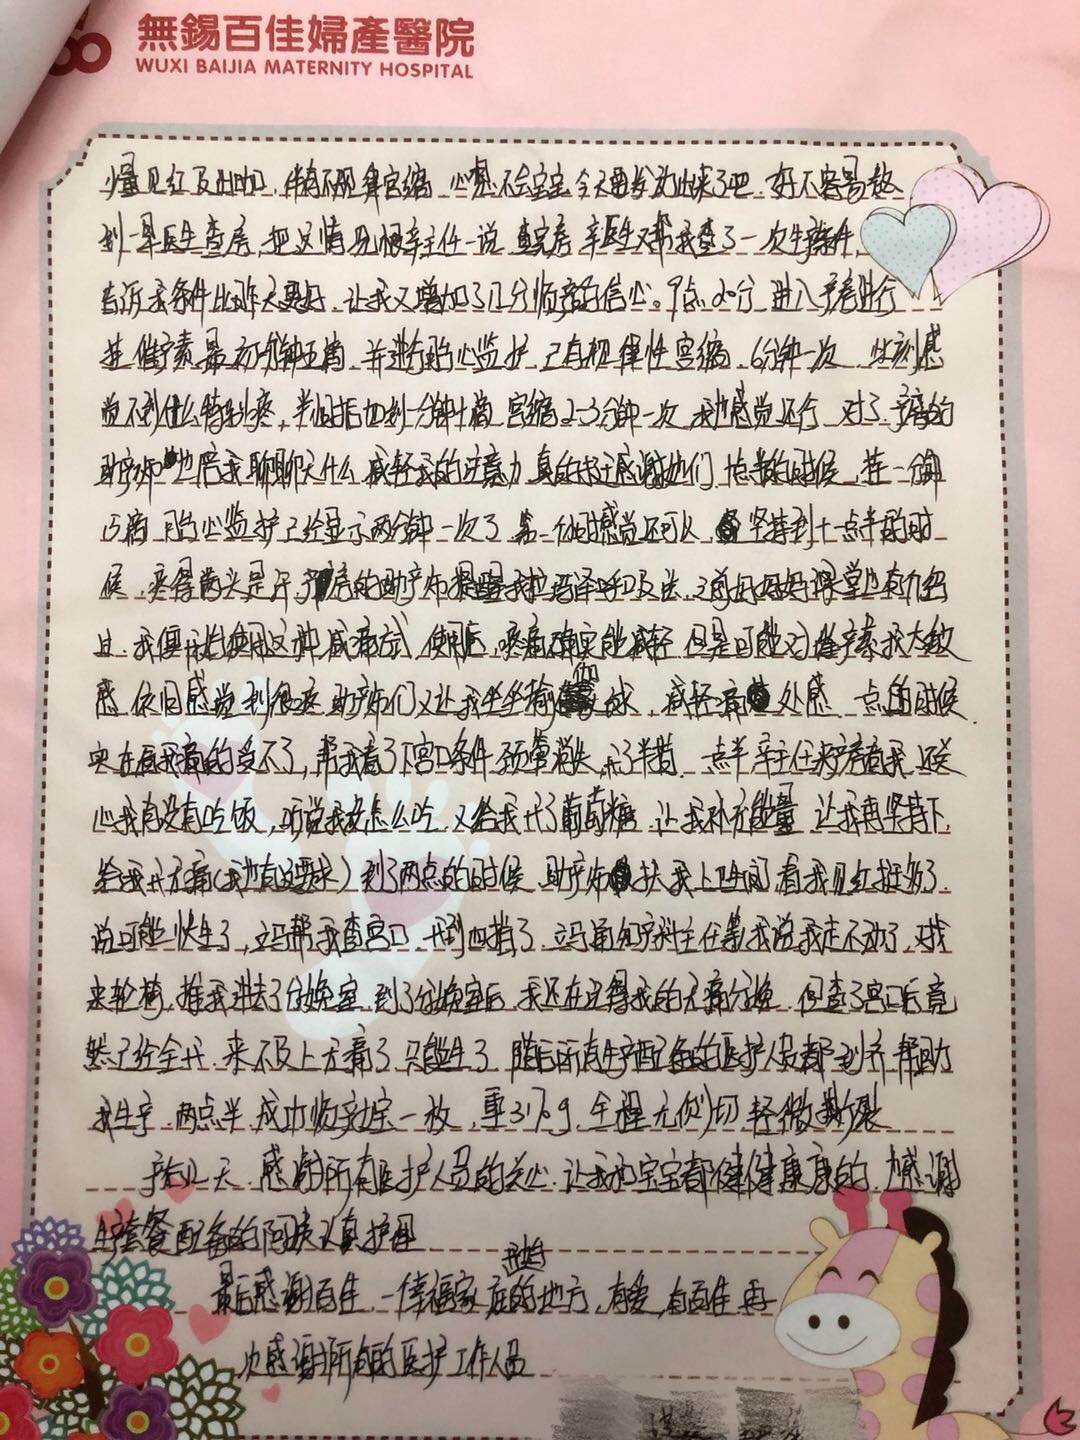 無錫百佳婦產醫院
WUXI BAIJIA MATERNITY HOSPITAL
量见红及时加,伴有不规律宫缩,心想不会宝宝今天要发动出来了吧,好不容易熬
到一早医生查房,把这情况跟辛主任一说,查完房,辛医生又帮我查了一次生产条件,
告诉我条件比昨天更好,让我又增加了几分顺产的信心。9点20分,进入产房进行
挂催产素,最初一分钟五滴,并进行胎心监护,已有规律性宫缩,6分钟一次,此刻感
觉不到什么特别疼,半小时后加到一分钟十滴,宫缩2-3分钟一次,我也感觉还行,对了,产房的
助产师也陪我聊聊天什么,减轻我的注意力,真的我还感谢她们,十点半的时候,挂一分钟
15滴,胎心监护已经显示两分钟一次了,第一个小时感觉还可以,坚持到十一点半的时
候,疼得满头是汗,产房的助产师提醒我拉玛泽呼吸法,之前妈妈课堂也有介绍
过,我便开始使用这种减痛方式,使用后,疼痛确实能减轻,但是可能对催产素我太敏
感,依旧感觉到很疼,助产师们又让我坐坐瑜伽球,减轻痛处感,一点的时候
实在痛的受不了,帮我看了下宫口条件,颈管消失,开了半指,一点半辛主任来产房看我,关
心我有没有吃饭,听说我没怎么吃,又给我开了葡萄糖,让我补充能量,让我再坚持下,
给我开无痛(我也有这要求)到了两点的时候,助产师扶我上卫生间,看我见红挺多了,
说可能快生了,立马帮我查宫口,开到四指了,立马通知产科主任等,我说我走不动了,找
来轮椅,推我进去了分娩室,到了分娩室后,我还在记得我的无痛分娩,但查了宫口后竟
然已经全开,来不及上无痛了,只能生了,随后所有生产配备的医护人员都到齐,帮助
我生产,两点半,成功顺产男宝一枚,重3170g,全程无侧切,轻微撕裂
产后几天,感谢所有医护人员的关心,让我和宝宝都健健康康的,感谢
生产套餐配备的阿姨认真护理
最后感谢百佳,一个幸福家庭开始的地方,有爱,有百佳,再
次感谢所有的医护工作人员